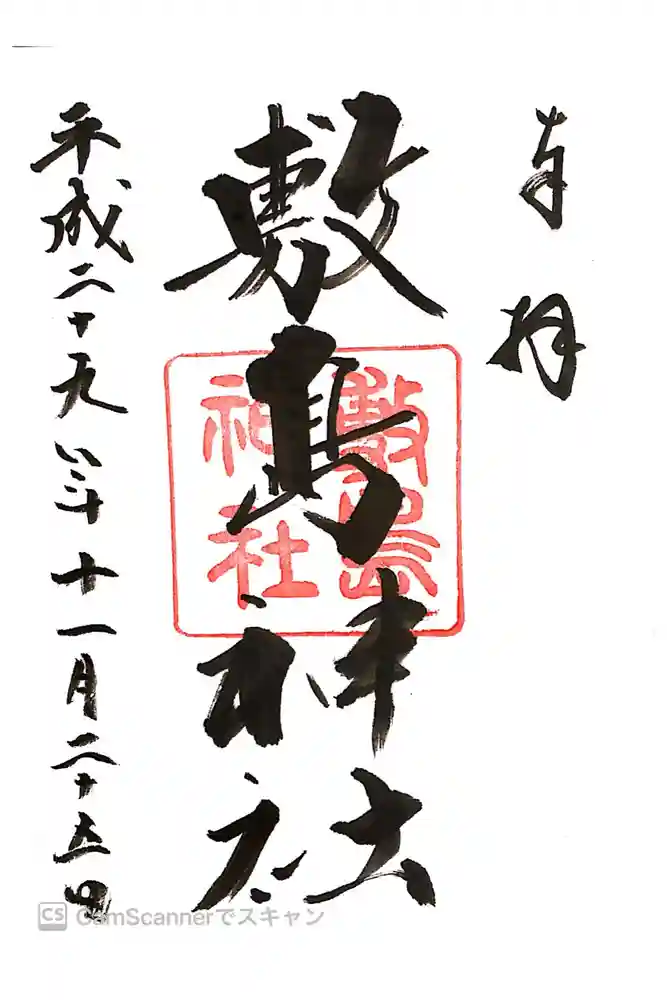 奉拝
敷島神社
敷島
神社
平成二十九年十一月二十五日
CS CamScannerでスキャン